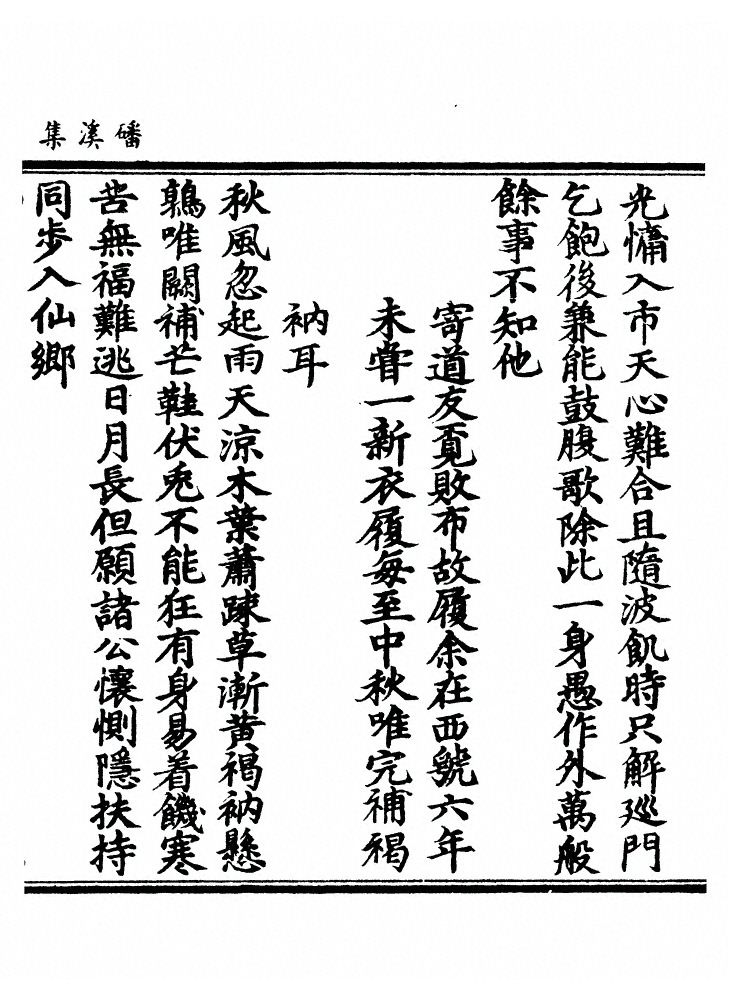 磻溪集
光慵入市天心難合且隨波飢時只解廵門
乞飽後兼能鼓腹歌除此一身愚作外萬般
餘事不知他
寄道友覔敗布故履余在西虢六年
未甞一新衣履每至中秋唯完補褐
衲耳
秋風忽起雨天涼木葉蕭踈草漸黃褐衲懸
鶉唯闕補芒鞋伏兎不能狂有身易着饑寒
苦無福難逃日月長但願諸公懷惻隱扶持
同步入仙鄉